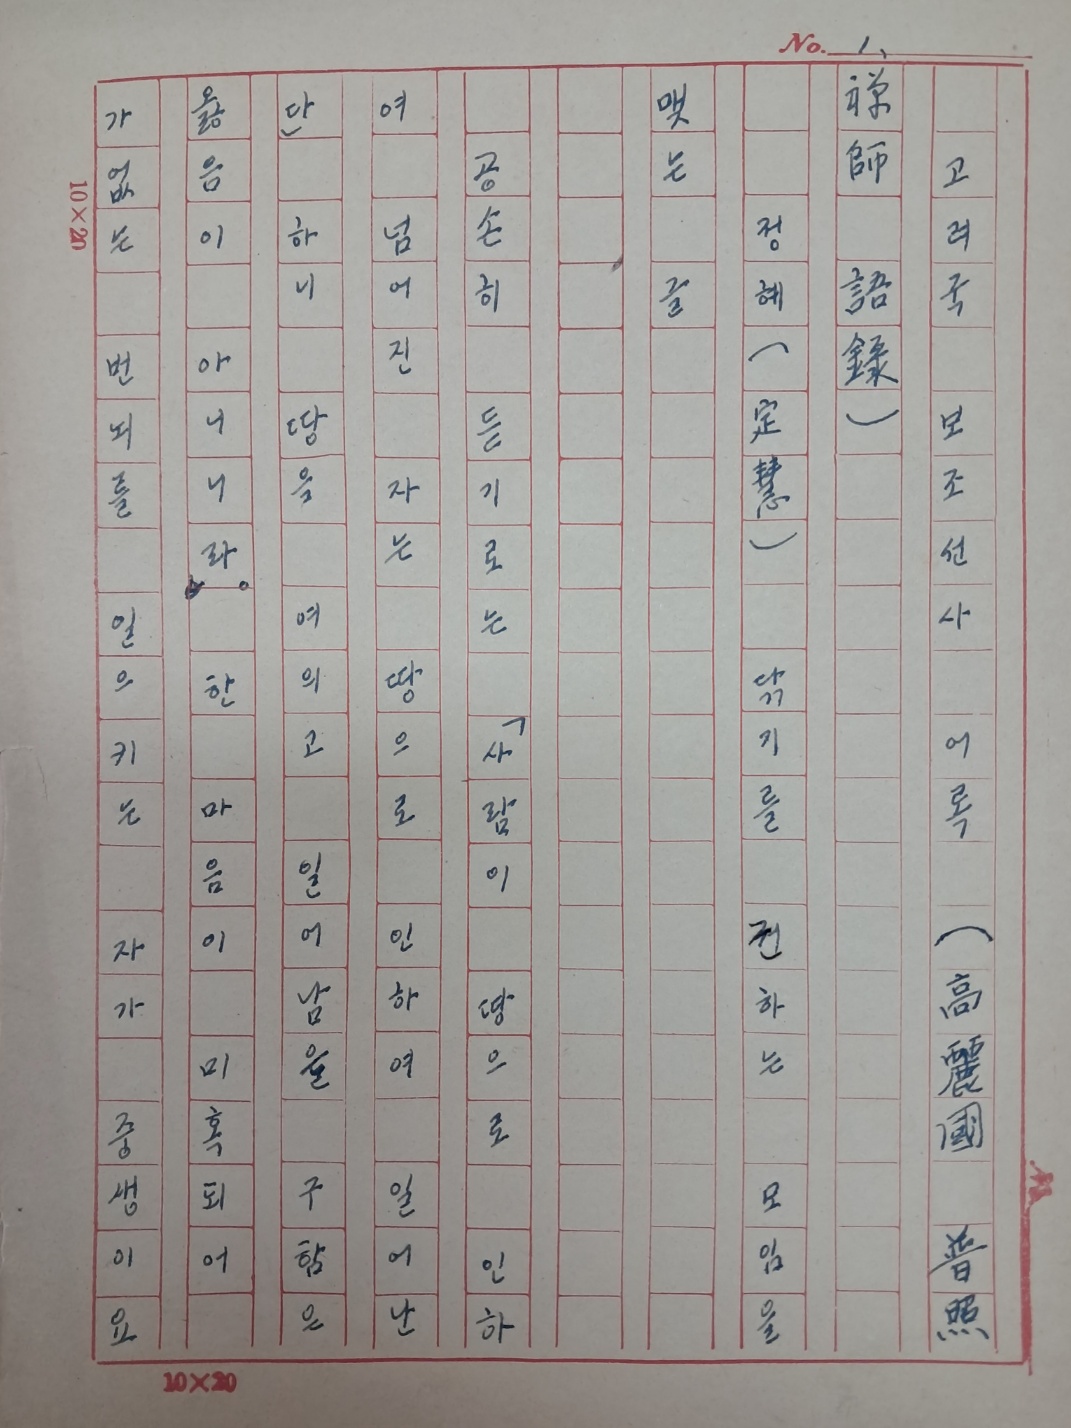 No. 1.
고려국 보조선사 어록 (高麗國 普照
禅師 語錄)
정혜(定慧) 닦기를 권하는 모임을
맺는 글
공손히 듣기로는 「사람이 땅으로 인하
여 넘어진 자는 땅으로 인하여 일어난
단 하니 땅을 여의고 일어남을 구함은
옳음이 아니니라. 한 마음이 미혹되어
가없는 번뇌를 일으키는 자가 중생이요
10×20
10×20